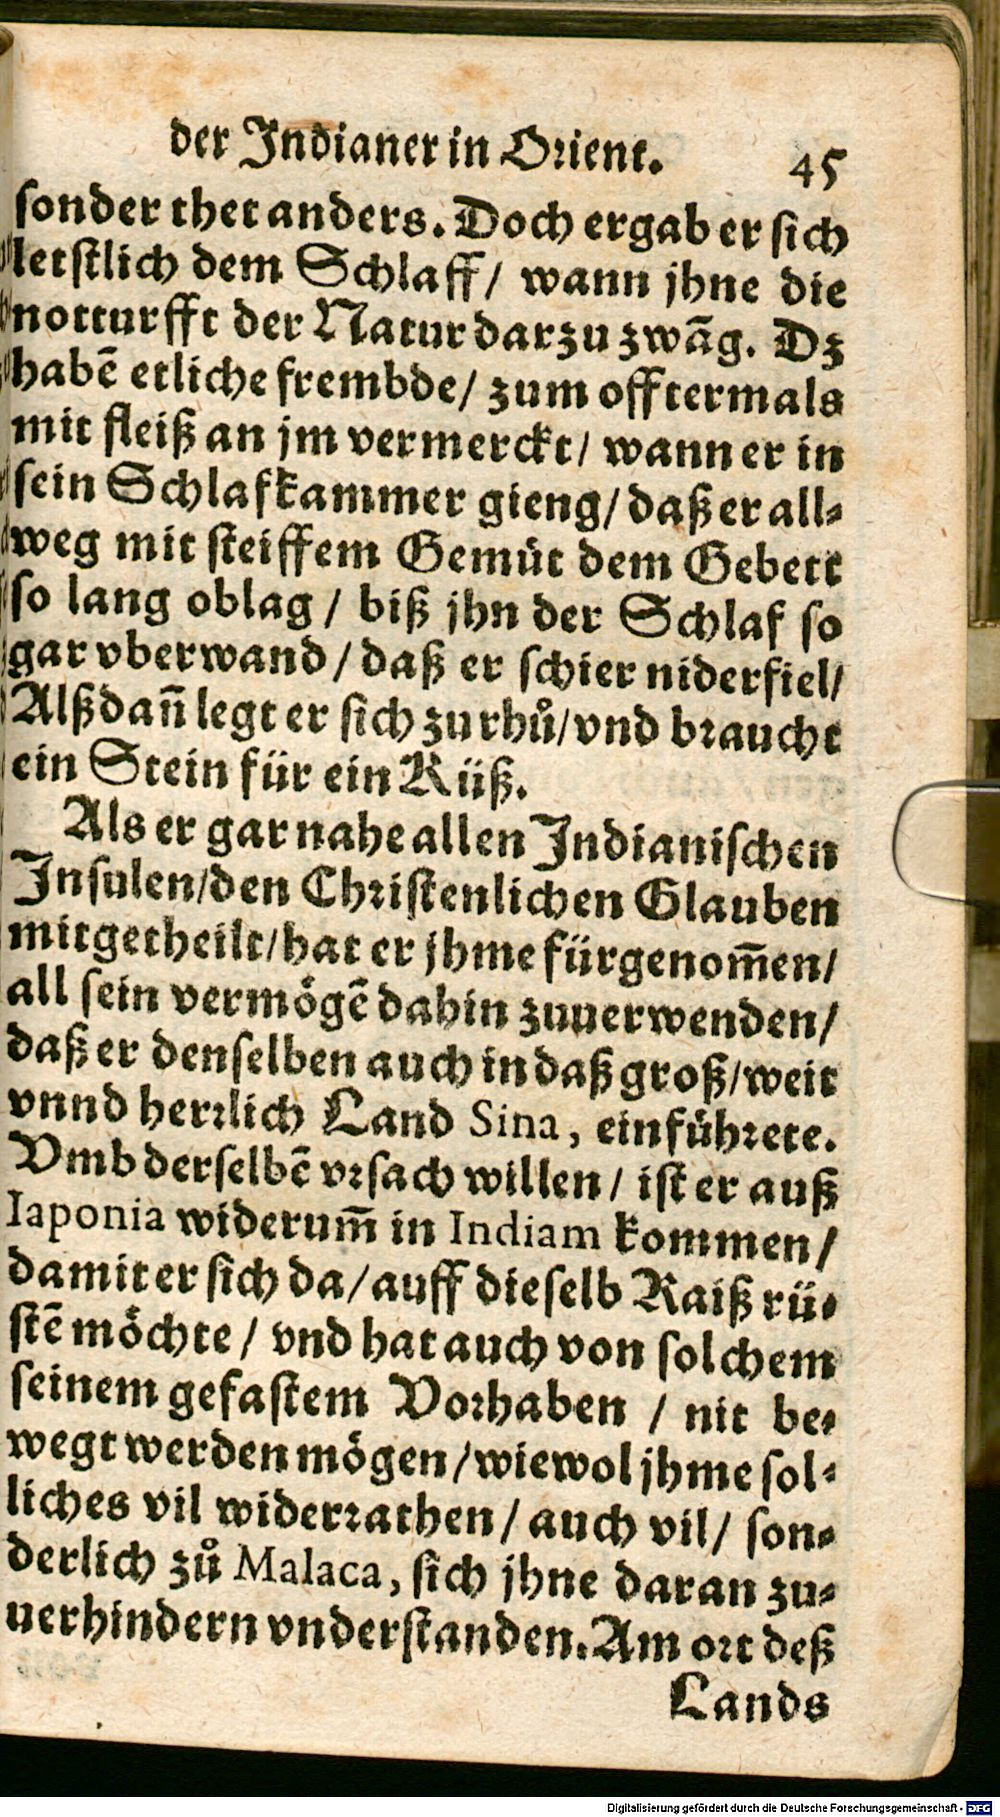 der Indianer in Orient. 45
sonder thet anders. Doch ergab er sich
letstlich dem Schlaff/ wann jhne die
notturfft der Natur darzu zwāg. Dz
habē etliche frembde/ zum offtermals
mit fleiß an jm vermerckt/ wann er in
sein Schlafkammer gieng/ daß er all⸗
weg mit steiffem Gemüt dem Gebett
so lang oblag / biß jhn der Schlaf so
gar vberwand / daß er schier niderfiel/
Alßdañ legt er sich zu rhů/ vnd braucht
ein Stein für ein Küß.
Als er gar nahe allen Indianischen
Insulen/den Christenlichen Glauben
mitgetheilt/hat er jhme fürgenom̄en/
all sein vermögē dahin zuuerwenden/
daß er denselben auch in daß groß/weit
vnnd herrlich Land Sina, einführete.
Vmb derselbē vrsach willen / ist er auß
Iaponia widerum̄ in Indiam kommen/
damit er sich da/ auff dieselb Raiß rü⸗
stē möchte / vnd hat auch von solchem
seinem gefastem Vorhaben / nit be⸗
wegt werden mögen /wiewol jhme sol⸗
liches vil widerrathen / auch vil/ son⸗
derlich zů Malaca, sich jhne daran zu⸗
uerhindern vnderstanden. Am ort deß
Lands
Digitalisierung gefördert durch die Deutsche Forschungsgemeinschaft - DFG